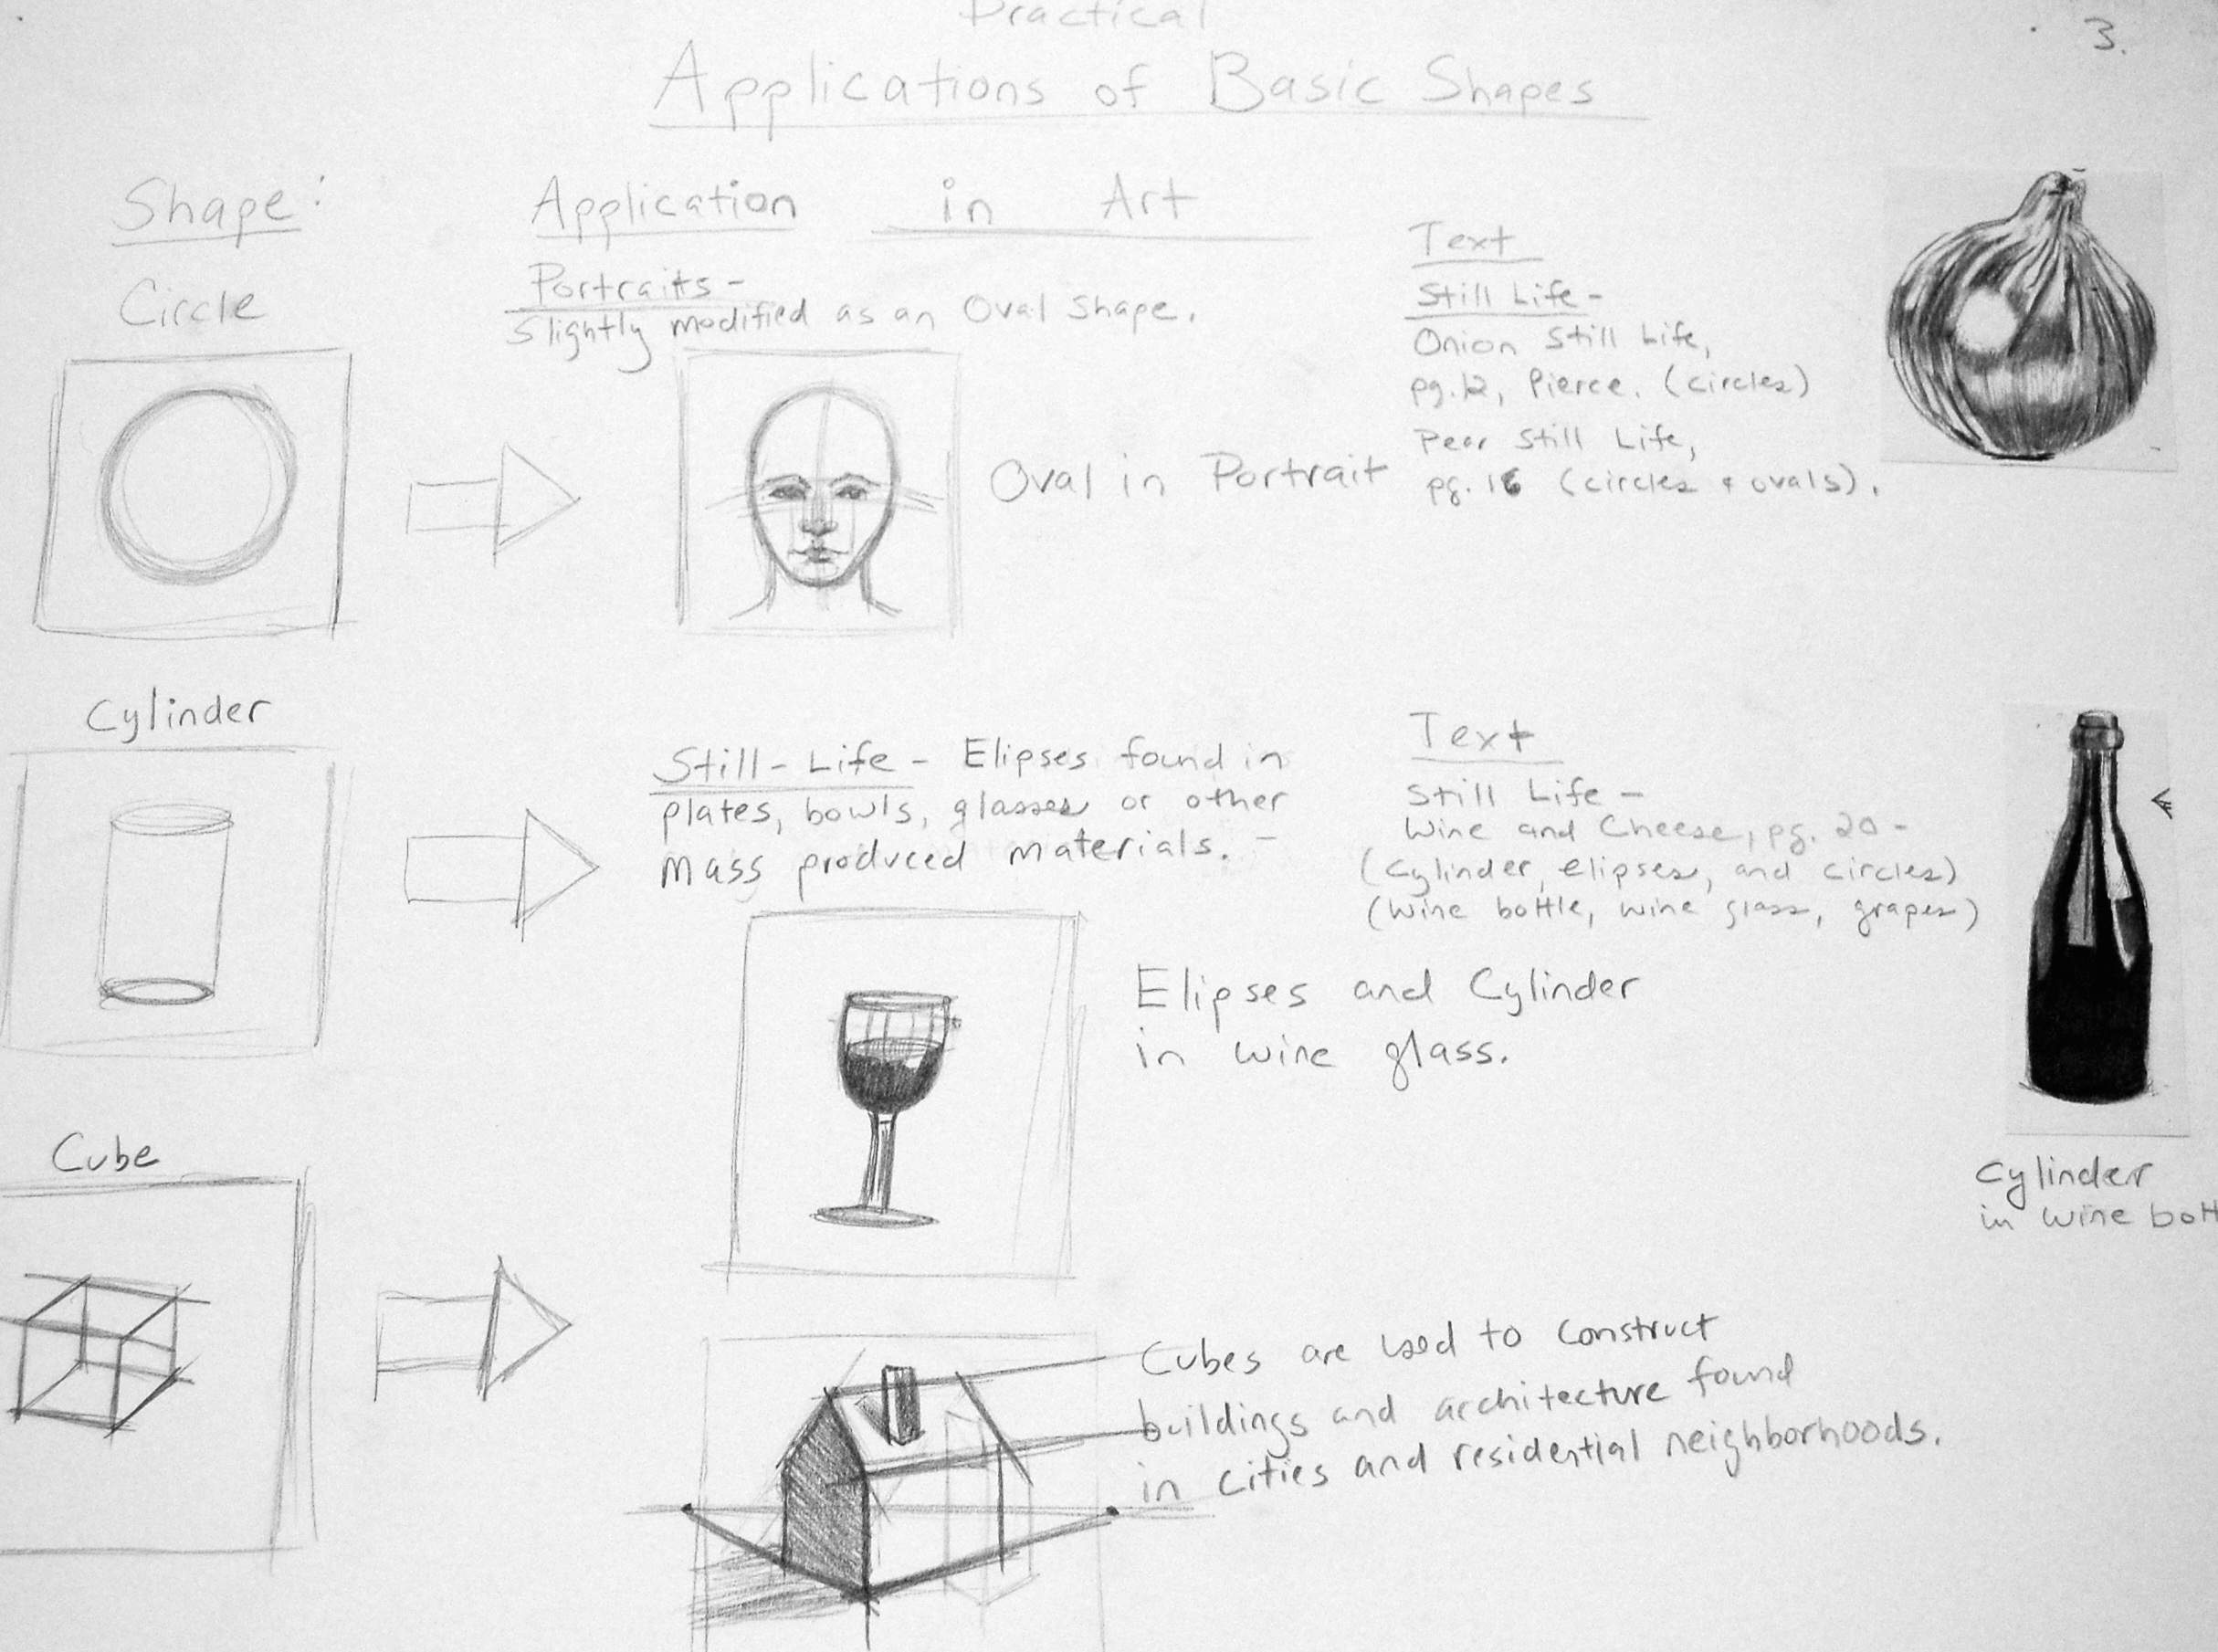 Practical
3.
Applications of Basic Shapes
Shape:
Application in Art
Circle
Portraits-
Slightly modified as an Oval Shape.
Oval in Portrait
Text
Still Life-
Onion Still Life,
pg. 12, Pierce. (circles)
Pear Still Life,
pg. 16 (circles & ovals).
Cylinder
Still-Life- Elipses found in
plates, bowls, glasses or other
mass produced materials. -
Text
Still Life-
Wine and Cheese, pg. 20-
(Cylinder, elipses, and circles)
(wine bottle, wine glass, grapes)
Elipses and Cylinder
in wine glass.
Cylinder
in wine bott
Cube
Cubes are used to construct
buildings and architecture found
in cities and residential neighborhoods.